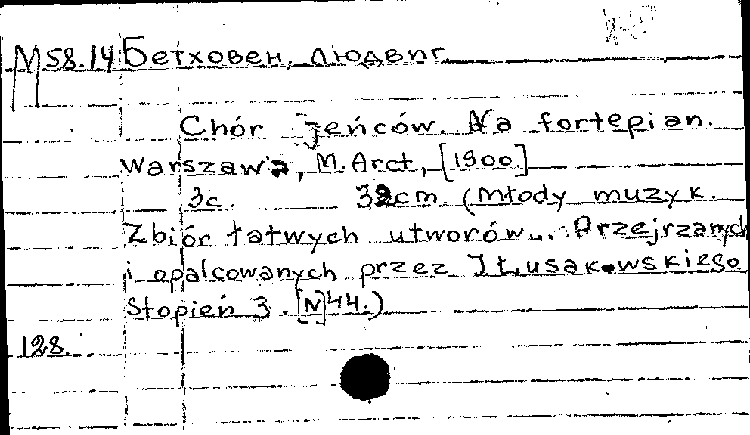 М58.14 Бетховен, Людвиг
Chór jeńców. Na fortepian.
Warszawa, M. Arct, [1900]
3c. 32cm (Młody muzyk.
Zbiór łatwych utworów... Przejrzanych
i opalcowanych przez J Łusakowskiego
Stopień 3. [N]44.)
128.